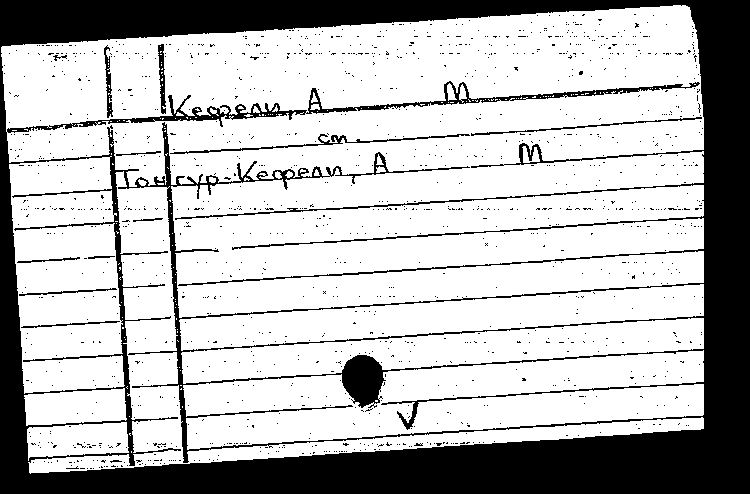 Кефели, А М
см.
Тонгур-Кефели, А М
V